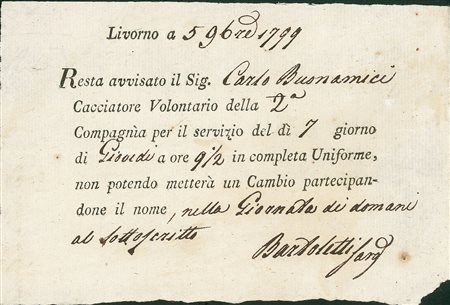 Livorno a 5 9bre 1799
Resta avvisato il Sig. Carlo Buonamici
Cacciatore Volontario della 2ª
Compagnìa per il servizio del dì 7 giorno
di Giovedi a ore 9½ in completa Uniforme,
non potendo metterà un Cambio partecipan-
done il nome, nella Giornata di domani
al Sottoscritto
Bartoletti